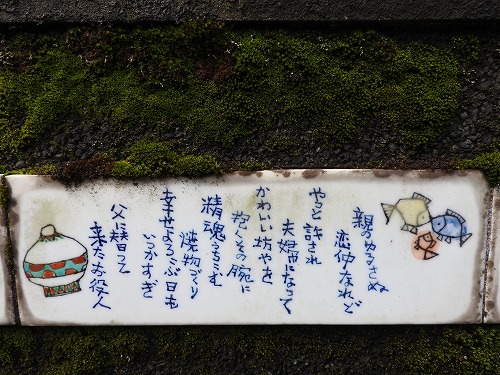 親のゆるさぬ
恋仲なれど
やっと許され
夫婦になって
かわいい坊やを
抱くその腕に
精魂こらむ
焼物づくり
幸せよろこぶ日も
いつかすぎ
父に替って
来たお役人